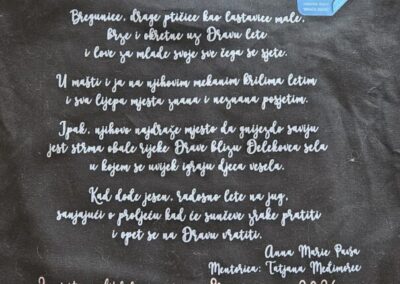 Bregunice, drage ptičice kao lastavice male,
brze i okretne uz Dravu lete
i love za mlade svoje sve čega se sjete.
U mašti i ja na njihovim mekanim krilima letim
i sva lijepa mjesta znana i neznana posjetim.
Ipak, njihovo najdraže mjesto da gnijezdo saviju
jest strma obale rijeke Drave blizu Đelekovca sela
u kojem se uvijek igraju djeca vesela.
Kad dođe jesen, radosno lete na jug,
sanjajući o proljeću kad će sunčeve zrake pratiti
i opet se na Dravu vratiti.
Anna Marie
Mentorica: Tatjana